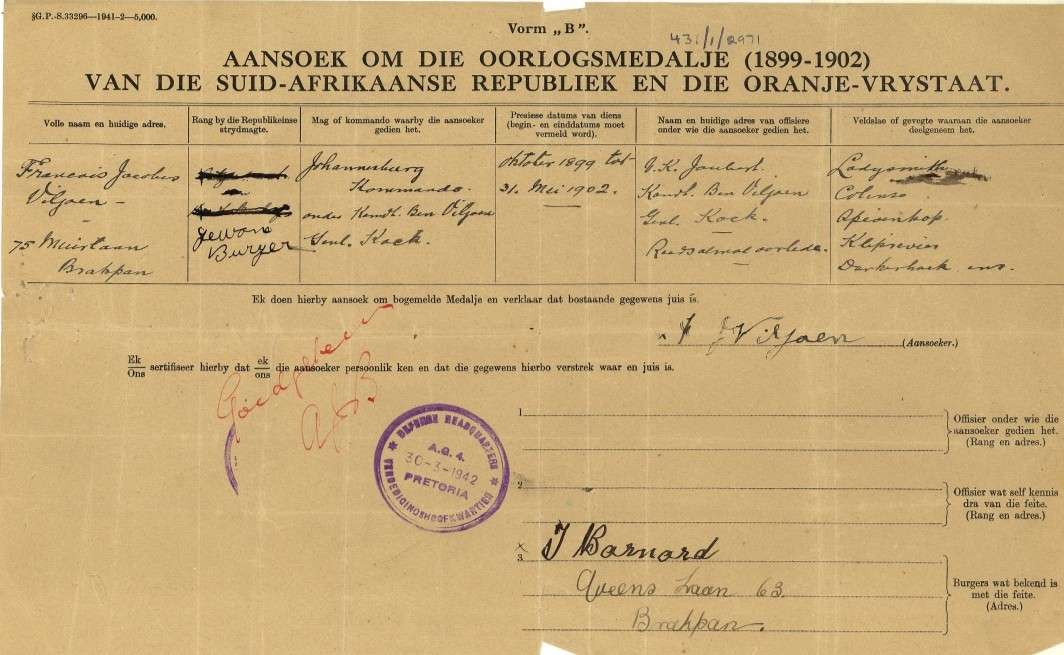 §G.P.-S.33296—1941-2—5,000.
Vorm „B”.
431/1/2971
AANSOEK OM DIE OORLOGSMEDALJE (1899-1902)
VAN DIE SUID-AFRIKAANSE REPUBLIEK EN DIE ORANJE-VRYSTAAT.
Volle naam en huidige adres.
Rang by die Republikeinse
strydmagte.
Mag of kommando waarby die aansoeker
gedien het.
Presiese datums van diens
(begin- en einddatums moet
vermeld word).
Naam en huidige adres van offisiere
onder wie die aansoeker gedien het.
Veldslae of gevegte waaraan die aansoeker
deelgeneem het.
Francois Jacobus
Viljoen –
75 Muirlaan
Brakpan
gewone
Burger
Johannesburg
Kommando.
onder Komdt. Ben Viljoen
Genl. Kock.
Oktober 1899 tot
31. Mei 1902.
J. K. Joubert.
Komdt. Ben Viljoen
Genl. Kock.
Reeds almal oorlede.
Ladysmith
Colenso
Apieskop
Kliprevier
Donkerhoek ens.
Ek doen hierby aansoek om bogemelde Medalje en verklaar dat bostaande gegewens juis is.
x F J Viljoen (Aansoeker.)
Ek/Ons sertifiseer hierby dat ek/ons die aansoeker persoonlik ken en dat die gegewens hierbo verstrek waar en juis is.
Goedgekeur
DEFENCE HEADQUARTERS
A.G. 4.
30-3-1942
PRETORIA
VERDEDIGINGSHOOFKWARTIER
1
Offisier onder wie die
aansoeker gedien het.
(Rang en adres.)
2
Offisier wat self kennis
dra van die feite.
(Rang en adres.)
x
3. J Barnard
Queens Laan 63.
Brakpan.
Burgers wat bekend is
met die feite.
(Adres.)